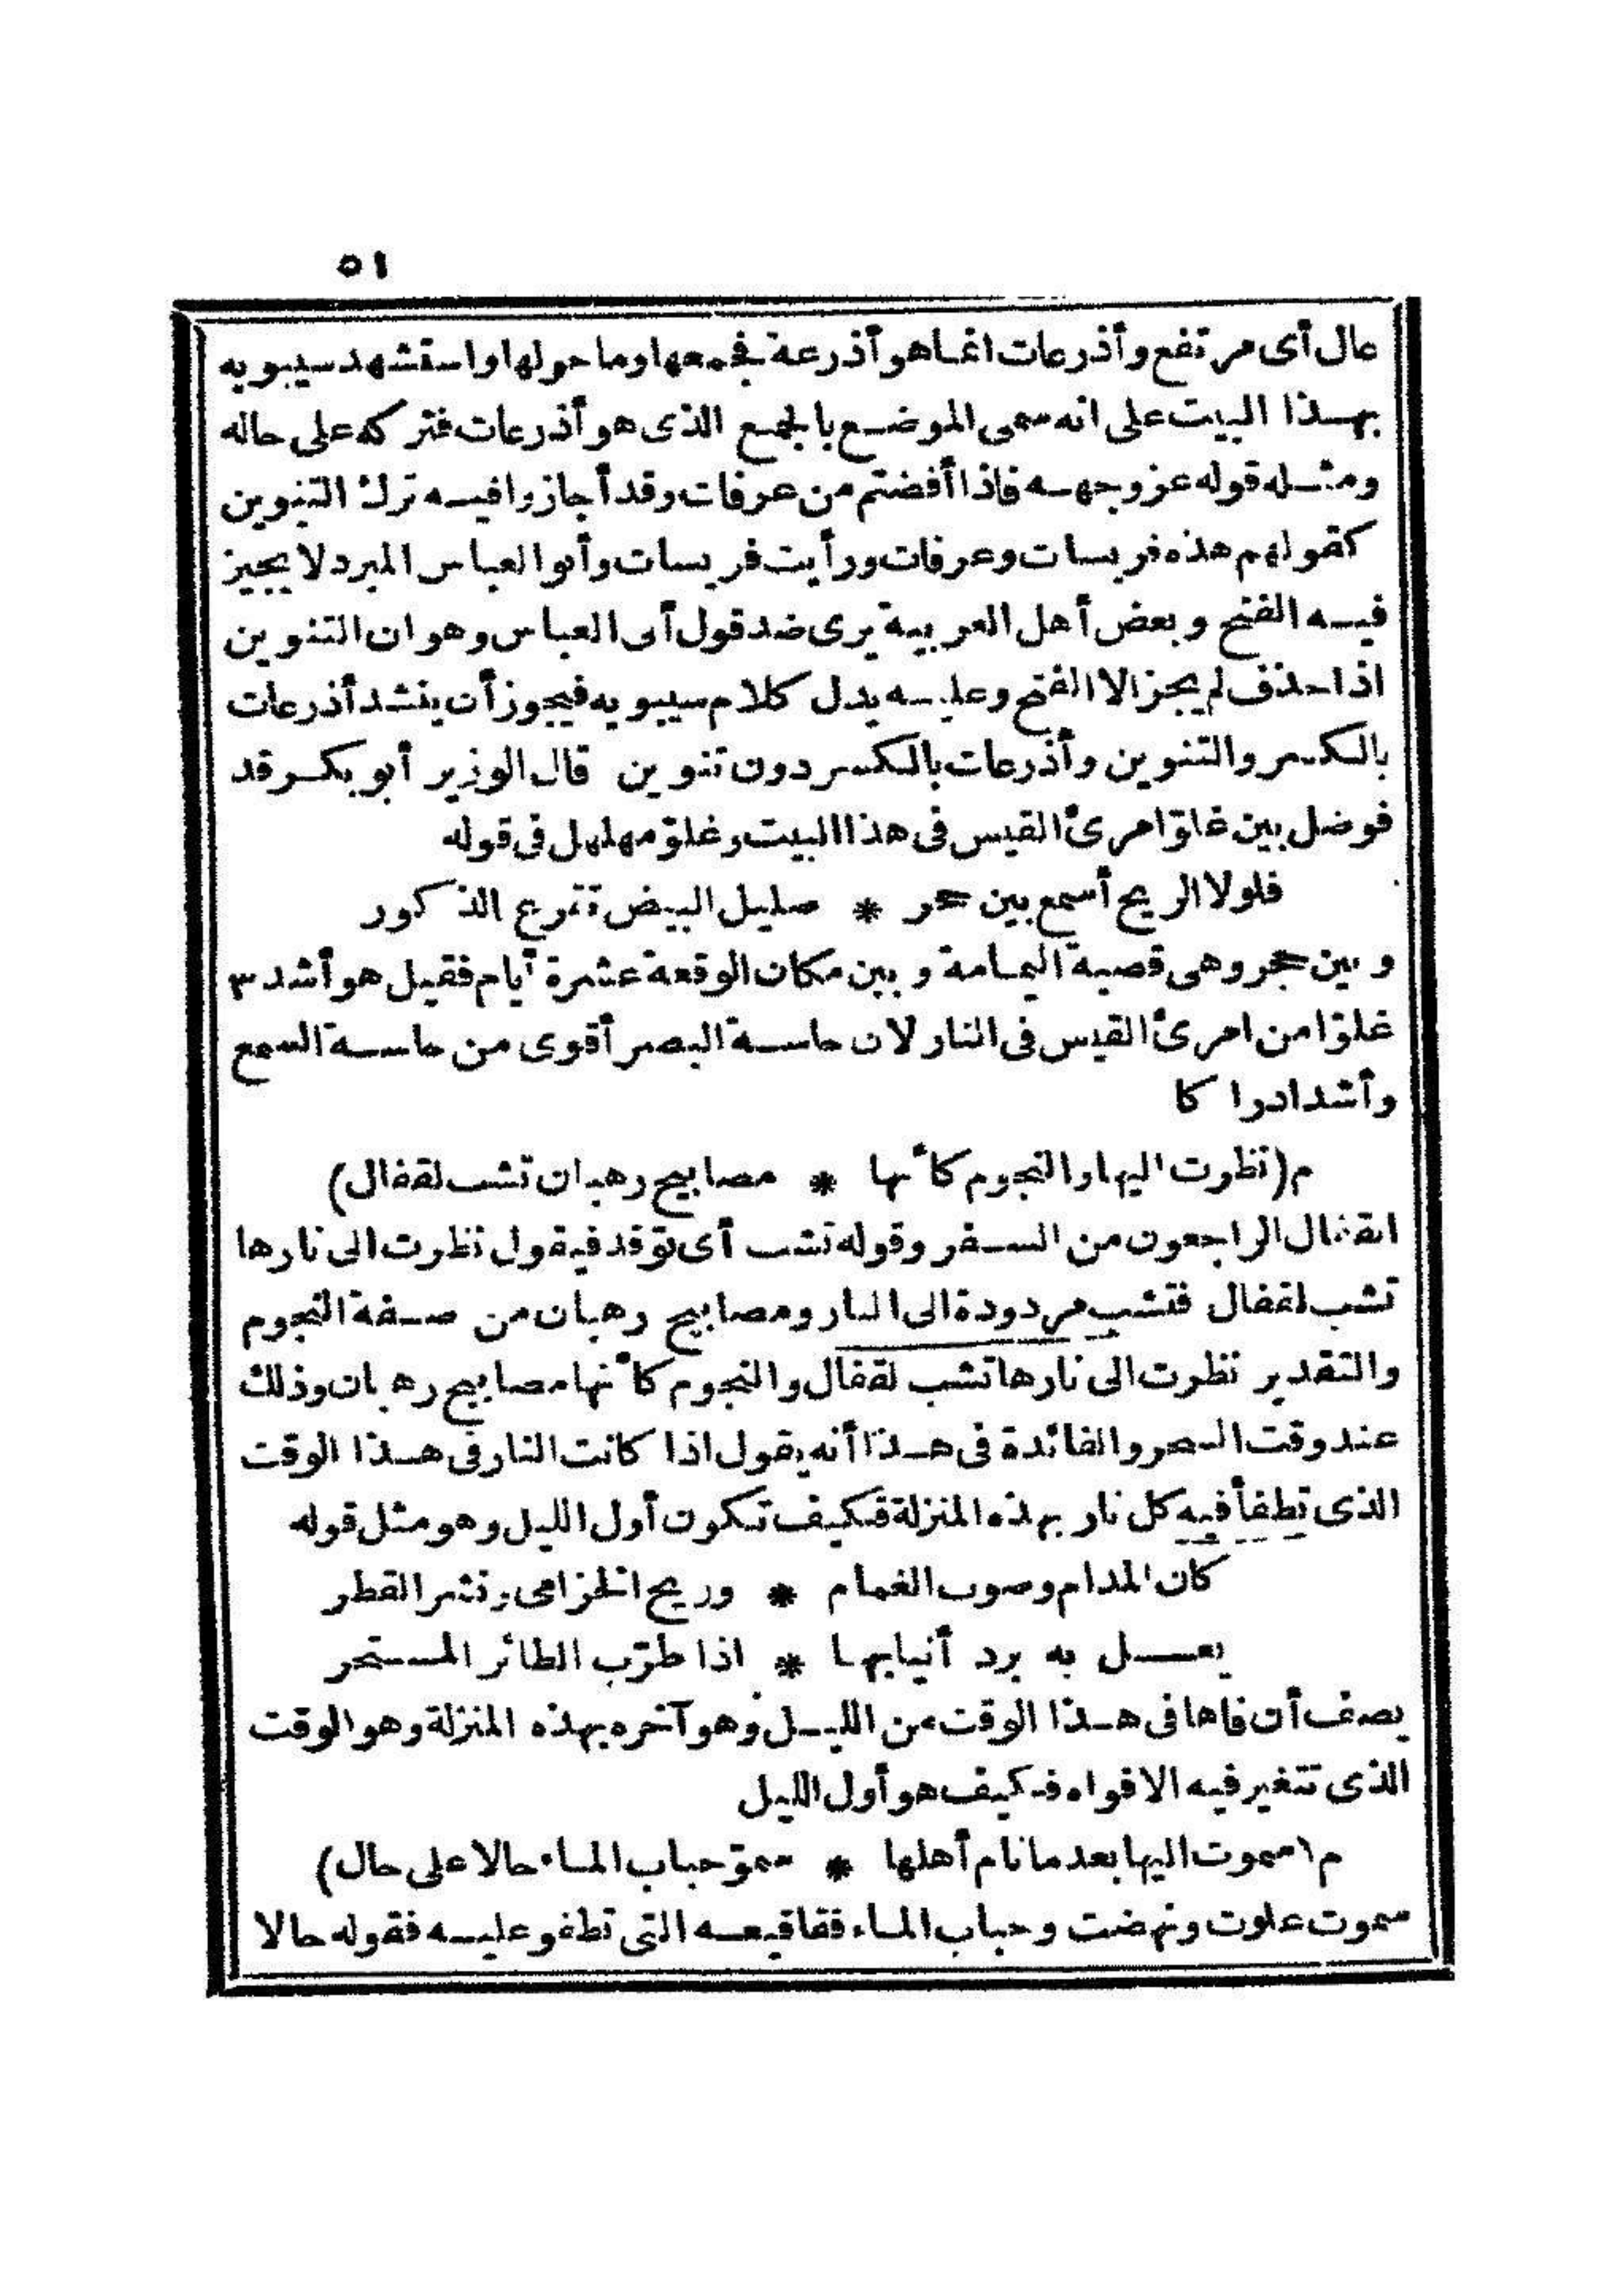 ٥١
عال أى مرتفع وأذرعات انما هو أذرعة فجمعها وما حولها واستشهد سيبويه
بهذا البيت على انه سمى الموضع بالجمع الذى هو أذرعات فتركه على حاله
ومثله قوله عز وجهه فاذا أفضتم من عرفات وقد أجازوا فيه ترك التنوين
كقولهم هذه قريسات وعرفات ورأيت قريسات وأبو العباس المبرد لا يجيز
فيه الفتح وبعض أهل العربية يرى ضد قول أبى العباس وهو ان التنوين
اذا حذف لم يجز الا الفتح وعليه يدل كلام سيبويه فيجوز أن ينشد أذرعات
بالكسر والتنوين وأذرعات بالكسر دون تنوين قال الوزير أبو بكر قد
فوضل بين غلوّ امرئ القيس فى هذا البيت وغلوّ مهلهل فى قوله
فلولا الريح أسمع بين حجر * صليل البيض تقرع الذكور
وبين حجر وهى قصبة اليمامة وبين مكان الوقعة عشرة أيام فقيل هو أشد
غلوّا من امرئ القيس فى النار لان حاسة البصر أقوى من حاسة السمع
وأشد ادراكا
م (نظرت اليها والنجوم كأنها * مصابيح رهبان تشب لقفال)
القفال الراجعون من السفر وقوله تشب أى توقد فيقول نظرت الى نارها
تشب لقفال فتشب مردودة الى النار ومصابيح رهبان من صفة النجوم
والتقدير نظرت الى نارها تشب لقفال والنجوم كأنها مصابيح رهبان وذلك
عند وقت السحر والفائدة فى هذا أنه يقول اذا كانت النار فى هذا الوقت
الذى تطفأ فيه كل نار بهذه المنزلة فكيف تكون أول الليل وهو مثل قوله
كان المدام وصوب الغمام * وريح الخزامى ونشر القطر
يعل به برد أنيابها * اذا طرّب الطائر المستحر
يصف أن فاها فى هذا الوقت من الليل وهو آخره بهذه المنزلة وهو الوقت
الذى تتغير فيه الافواه فكيف هو أول الليل
م (سموت اليها بعد ما نام أهلها * سموّ حباب الماء حالا على حال)
سموت علوت ونهضت وحباب الماء فقاقيعه التى تطفو عليه فقوله حالا